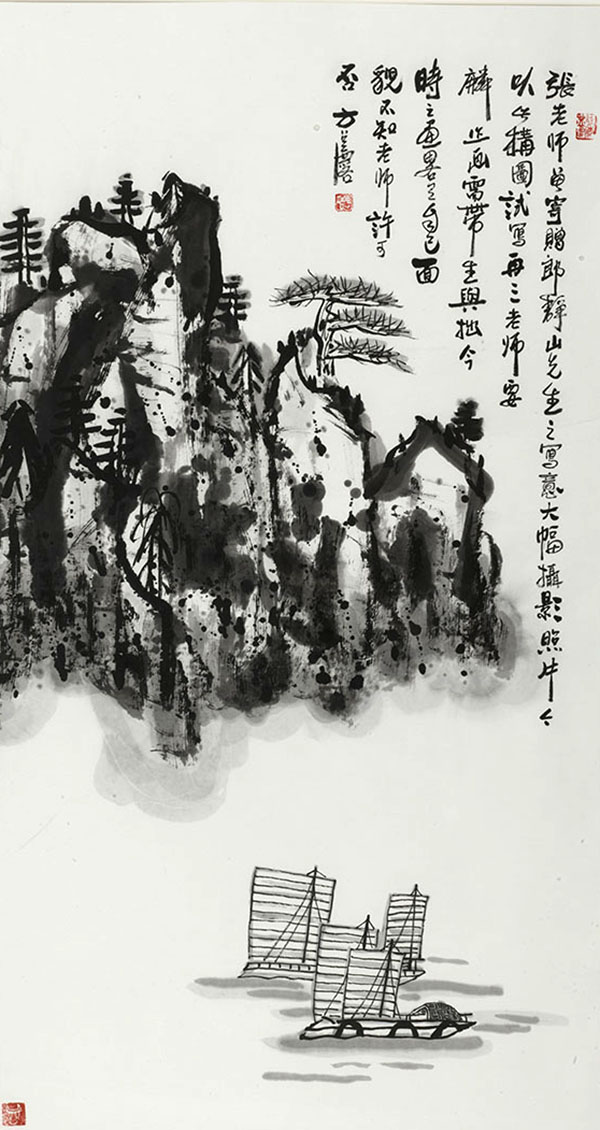 張老師曾寄贈郎靜山先生之寫意大幅攝影照片今
以此構圖試寫再三老師要
麟画需帶生與拙今
時之画畧具自己面
貌不知老師許可
否方召麐